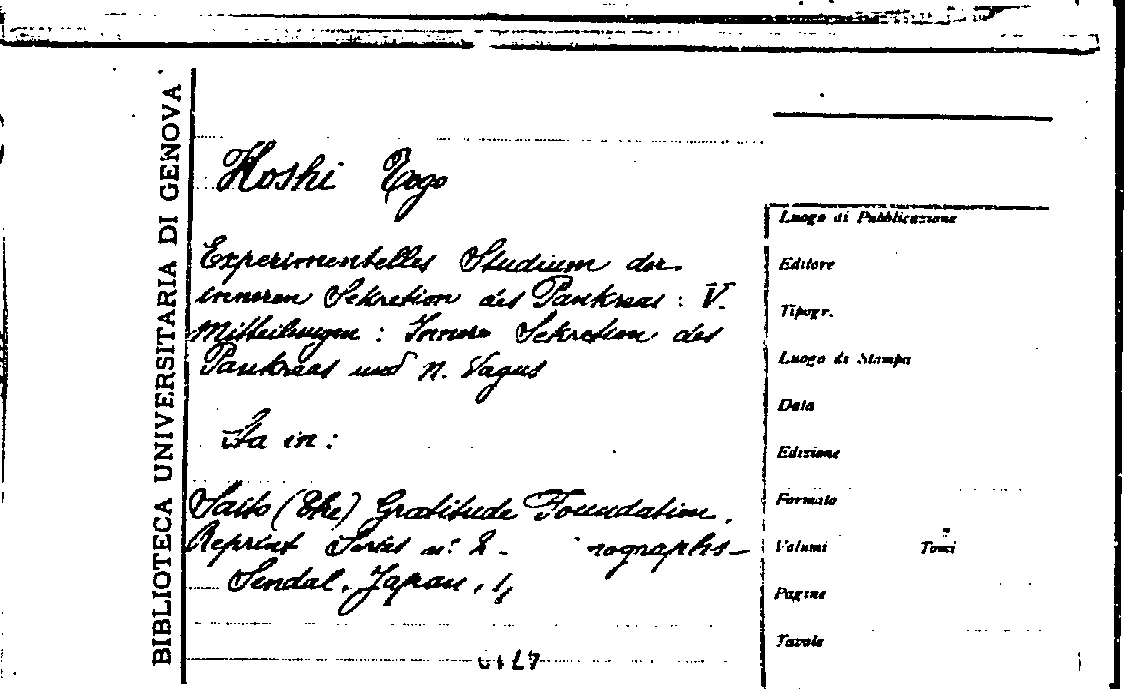 BIBLIOTECA UNIVERSITARIA DI GENOVA
Hoshi Togo
Experimentelles Studium der
inneren Sekretion des Pankreas : V.
Mitteilungen : Innere Sekretion des
Pankreas und N. Vagus
Sta in :
Saito (The) Gratitude Foundation.
Reprint Series n: 2 - nographs -
Sendai, Japan,
Luogo di Pubblicazione
Editore
Tipogr.
Luogo di Stampa
Data
Edizione
Formato
Volumi Tomi
Pagine
Tavole